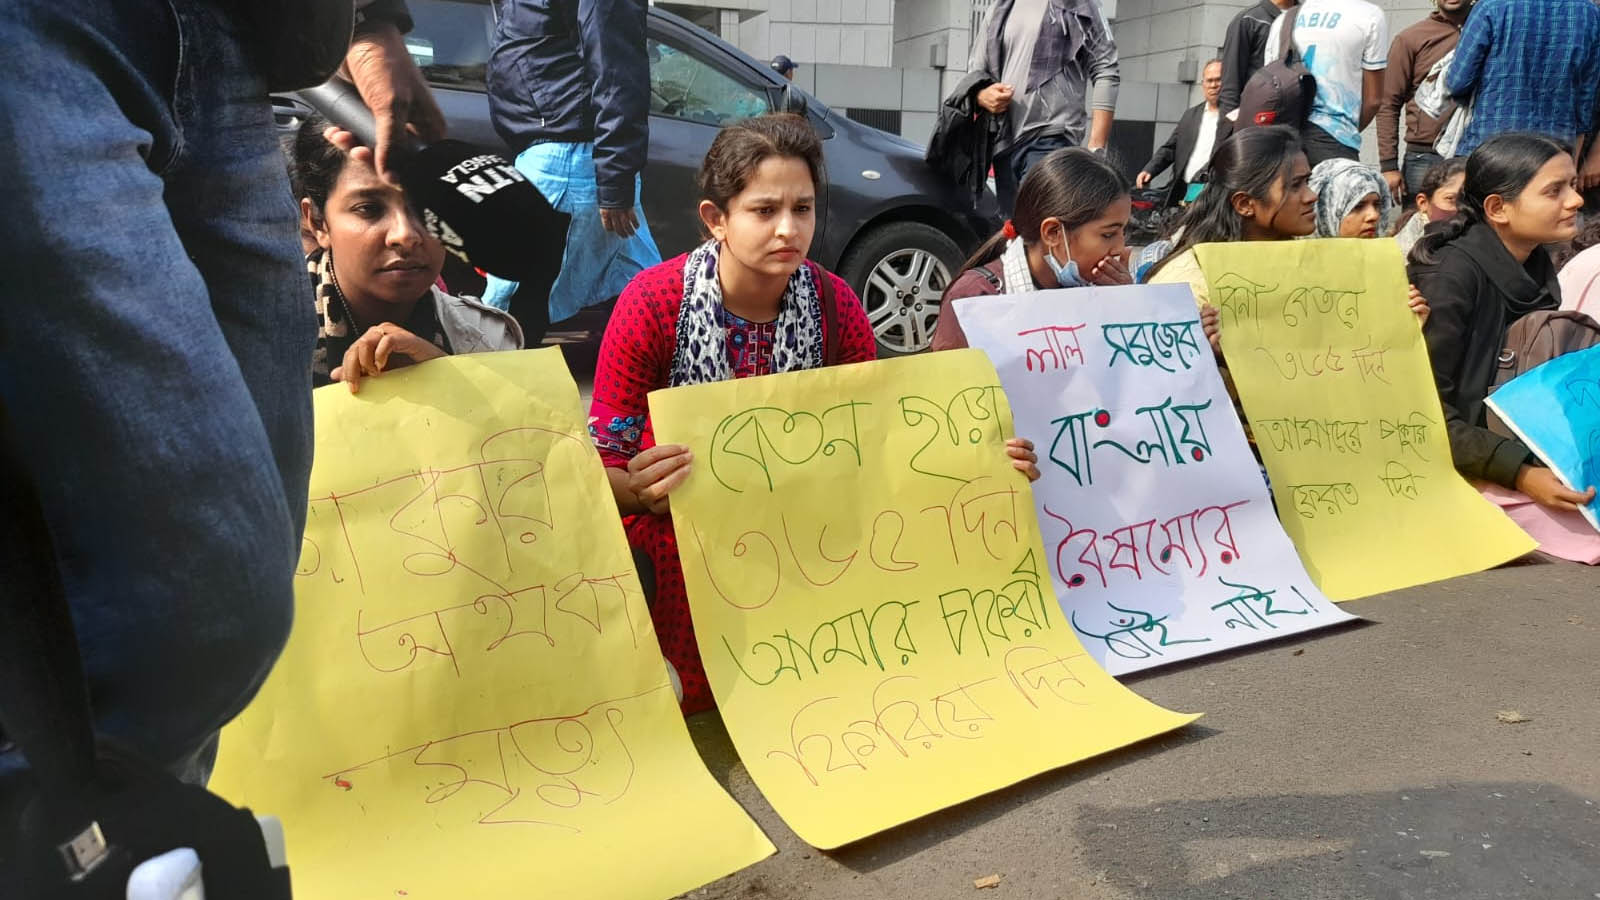 ATN
BANGLA
ABIB
চাকুরি
অথবা
মৃত্যু
বেতন ছাড়া
৩৬৫ দিন
আমার চাকরী
ফিরিয়ে দিন
লাল সবুজের
বাংলায়
বৈষম্যের
ঠাঁই নাই!
বিনা বেতনে
৩৬৫ দিন
আমাদের চাকুরি
ফেরত দিন